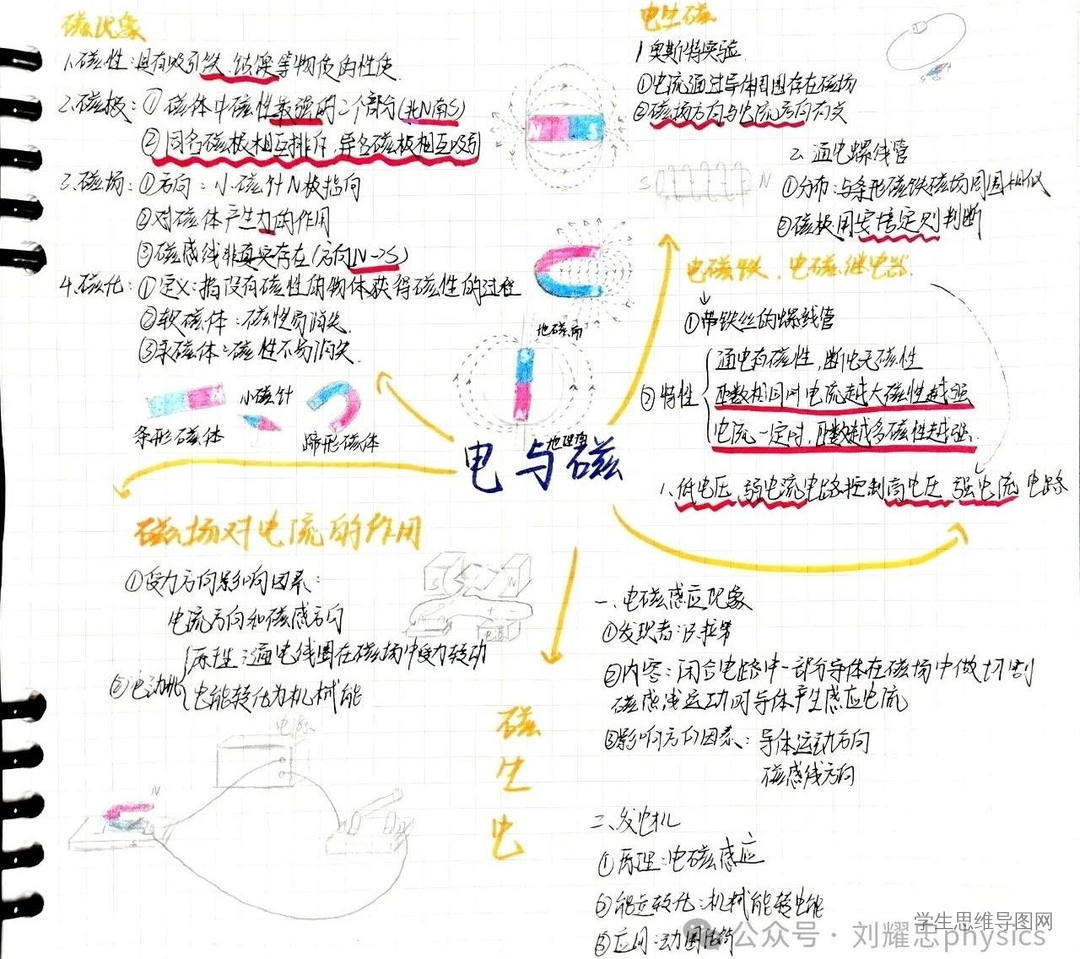 磁现象
1.磁性:具有吸引铁、钴、镍等物质的性质
2.磁极:①磁体中磁性最强的二个部分(北N南S)
②同名磁极相互排斥,异名磁极相互吸引
3.磁场:①方向:小磁针N极指向
②对磁体产生力的作用
③磁感线非真实存在(方向N→S)
4.磁化:①定义:指没有磁性的物体获得磁性的过程
②软磁体:磁性易消失
③永磁体:磁性不易消失
条形磁体
小磁针
蹄形磁体
N S
地磁南
地理南
电与磁
电生磁
1 奥斯特实验
①电流通过导体周围存在磁场
②磁场方向与电流方向有关
2.通电螺线管
S N
①分布:与条形磁铁磁场周围相似
②磁极用安培定则判断
电磁铁、电磁继电器
①带铁丝的螺线管
②特性
通电有磁性,断电无磁性
匝数相同时电流越大磁性越强
电流一定时,匝数越多磁性越强
1、低电压、弱电流电路控制高电压、强电流电路
磁场对电流的作用
①受力方向影响因素:
电流方向和磁感方向
②电动机
原理:通电线圈在磁场中受力转动
电能转化为机械能
S N
电源
电源
N
磁生电
一、电磁感应现象
①发现者:法拉第
②内容:闭合电路中一部分导体在磁场中做切割
磁感线运动时导体产生感应电流
③影响方向因素:导体运动方向
磁感线方向
二、发电机
①原理:电磁感应
②能量转化:机械能转电能
③应用:动圈话筒
学生思维导图网
公众号·刘耀忠physics